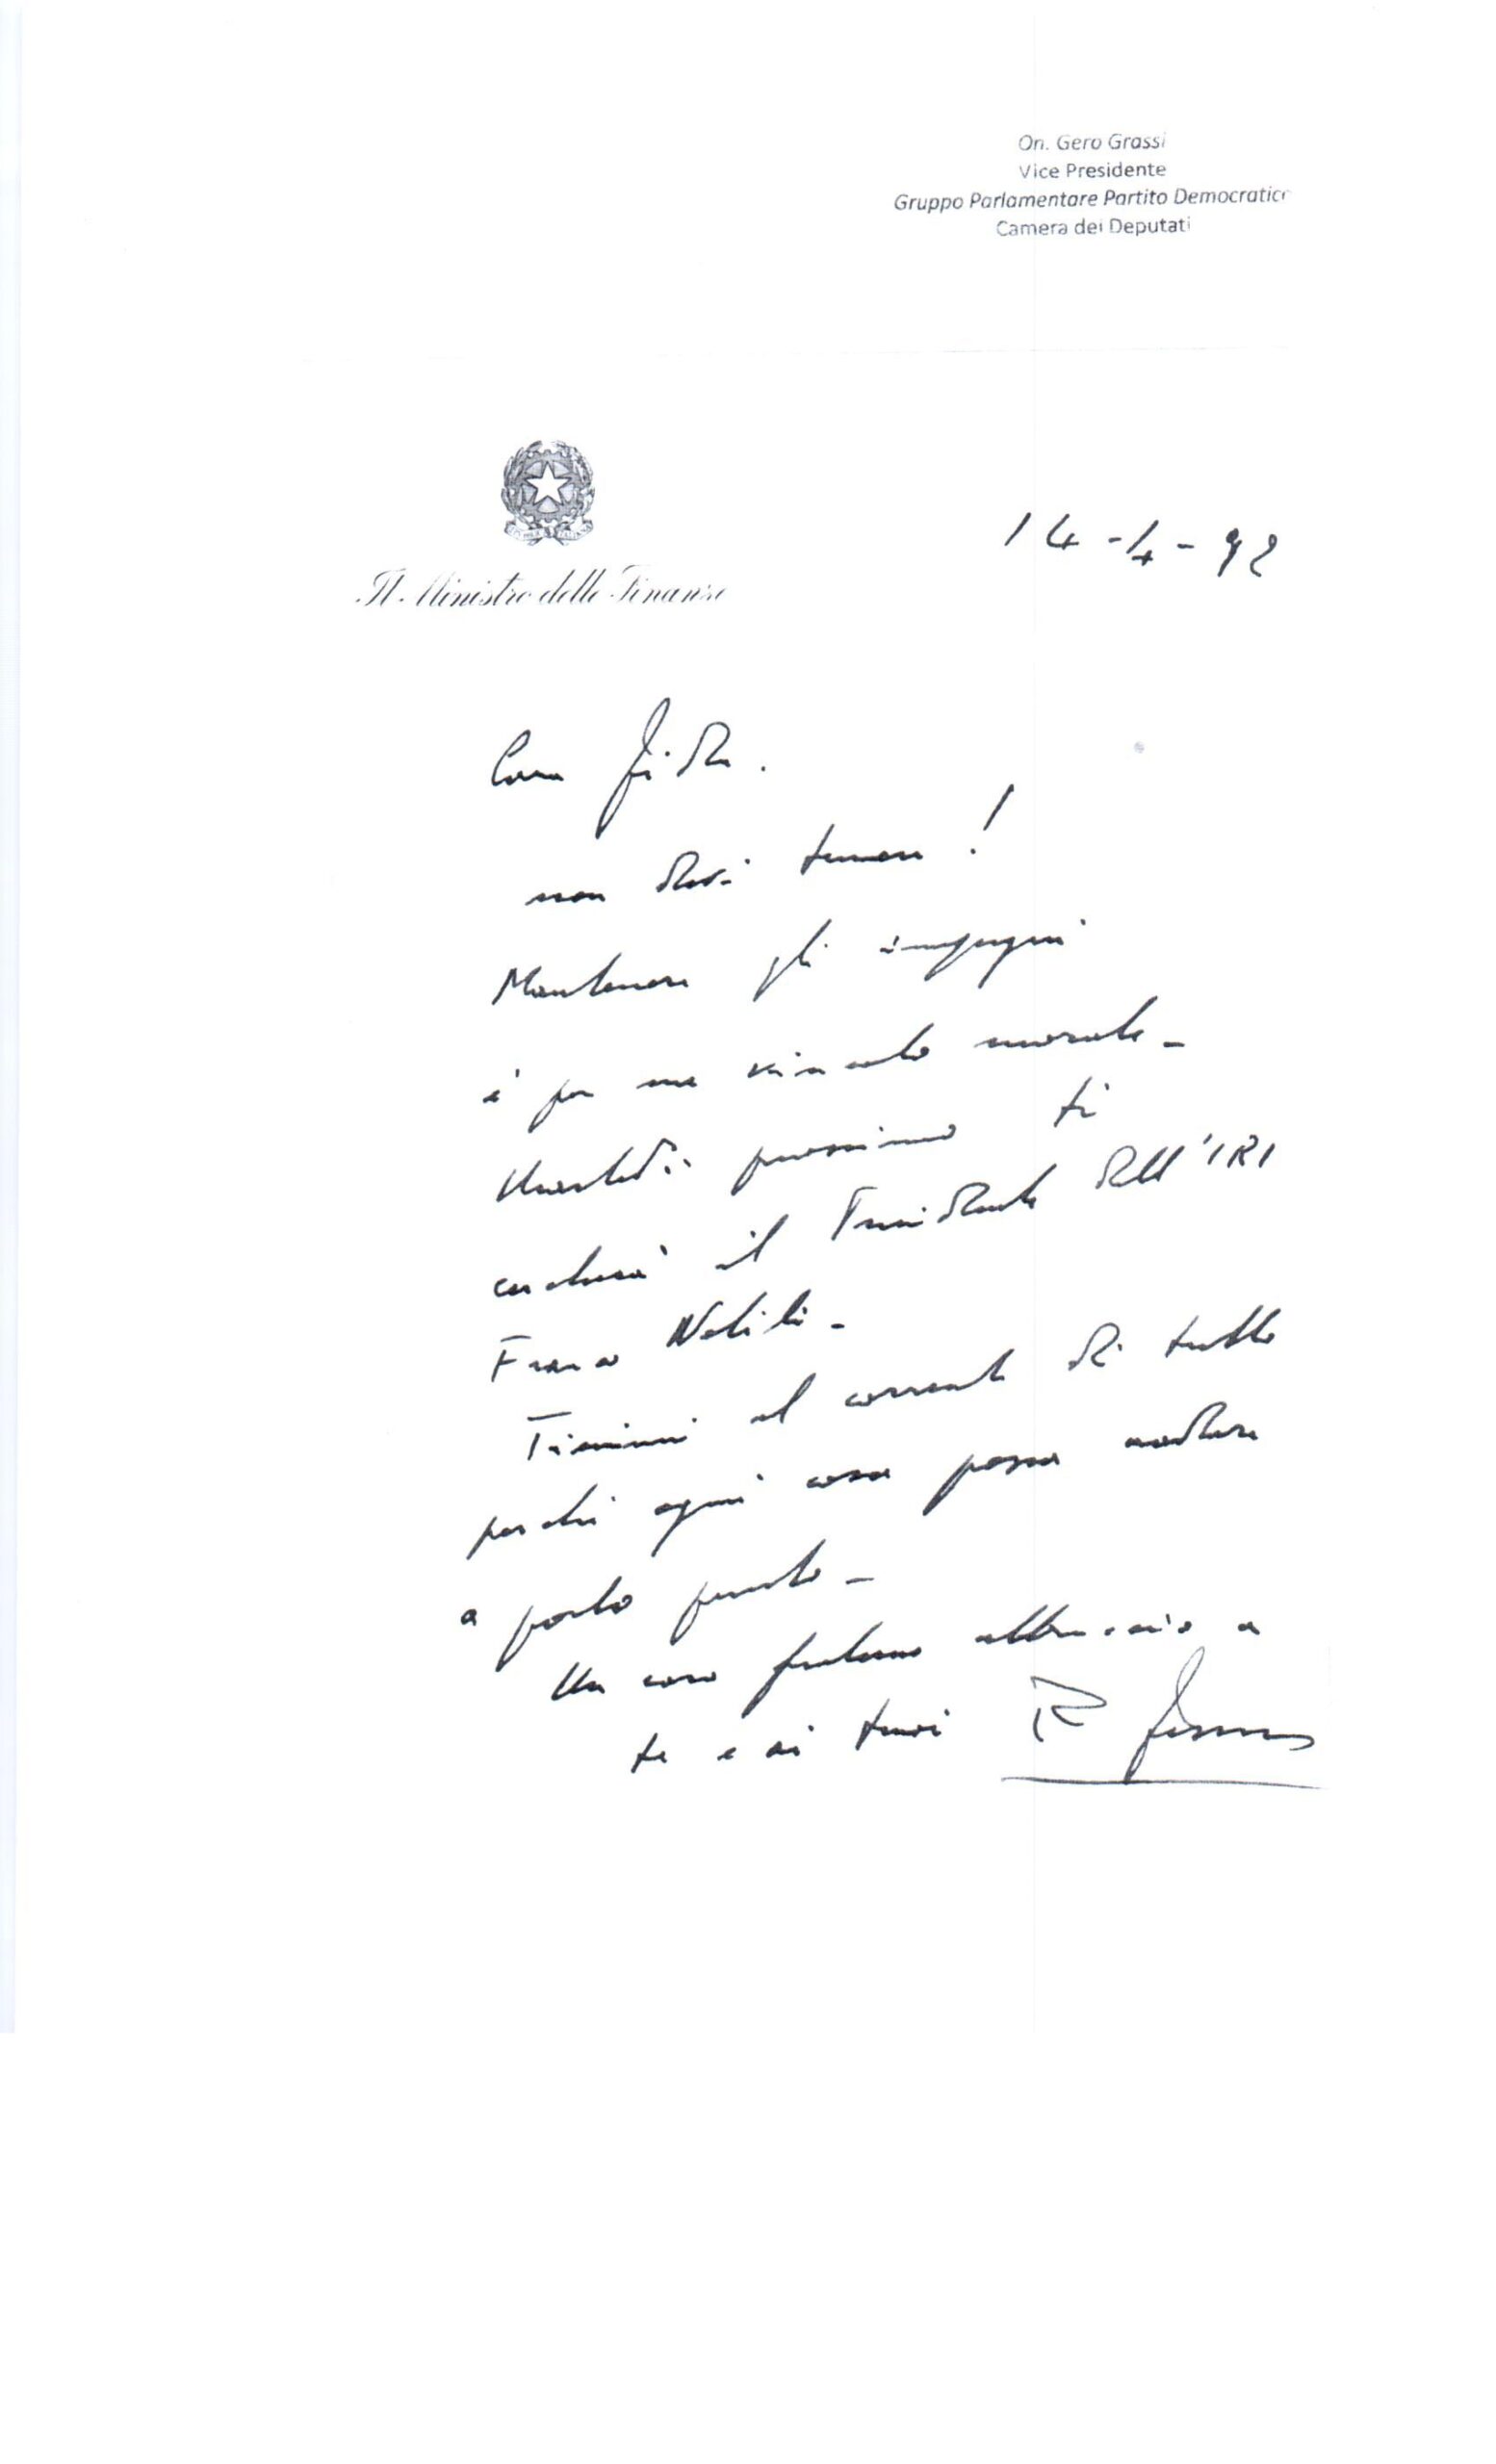 On. Gero Grassi
Vice Presidente
Gruppo Parlamentare Partito Democratico
Camera dei Deputati
14-4-92
Il Ministro delle Finanze
Caro
non devi temere!
Mantenere gli impegni
è per me vincolo morale-
Martedì prossimo ti
cercherà il Presidente dell'IRI
Franco Nobili-
Tienimi al corrente di tutto
perché ogni cosa possa andare
a posto
Un caro fraterno abbraccio a
te e ai tuoi R